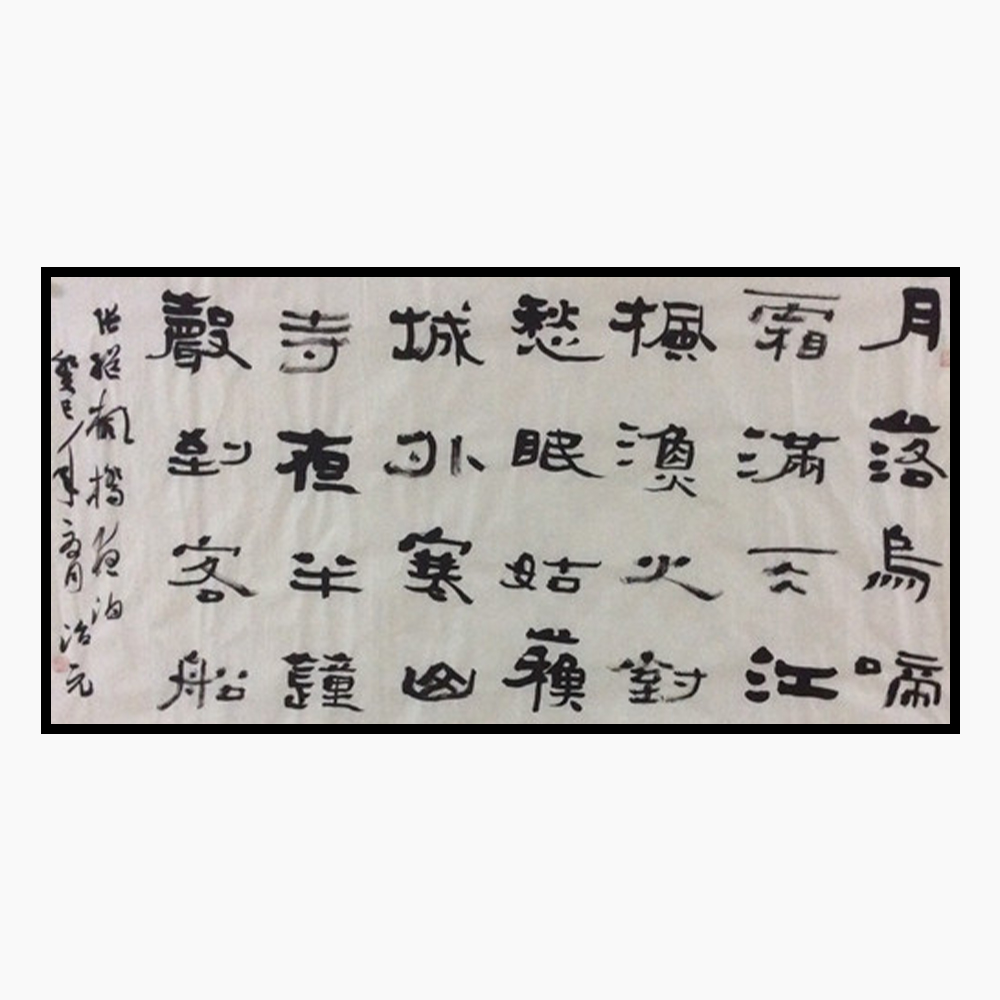 月落烏啼
霜滿天江
楓漁火對
愁眠姑蘇
城外寒山
寺夜半鐘
聲到客船
張繼楓橋夜泊
癸巳年月治元